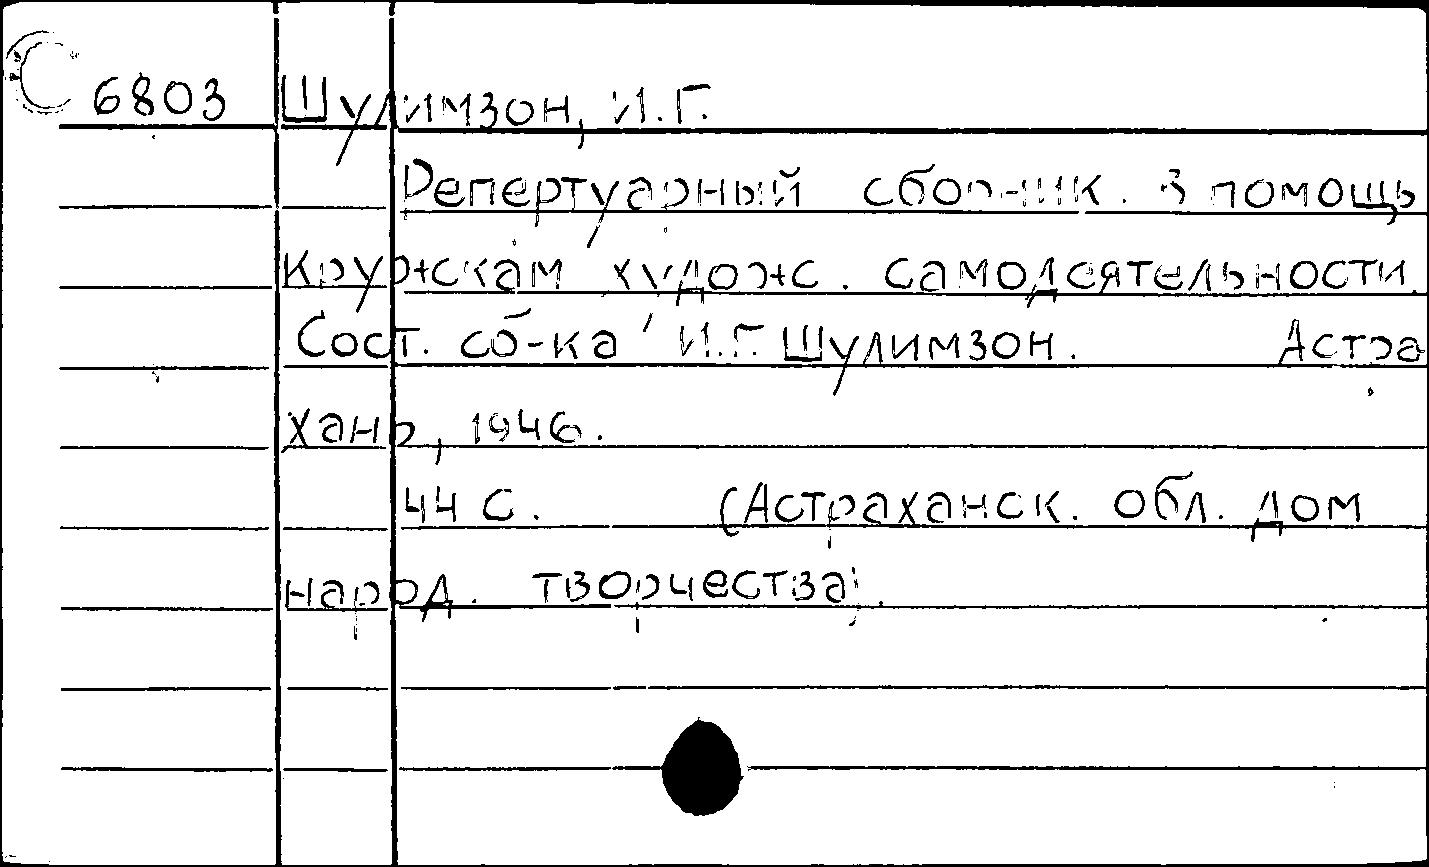 6803 Шулимзон, И.Г.
Репертуарный сборник. В помощь
кружкам худож. самодеятельности.
Сост. сб-ка И.Г. Шулимзон. Астра
хань, 1946.
44 с. (Астраханск. обл. дом
народ. творчества).